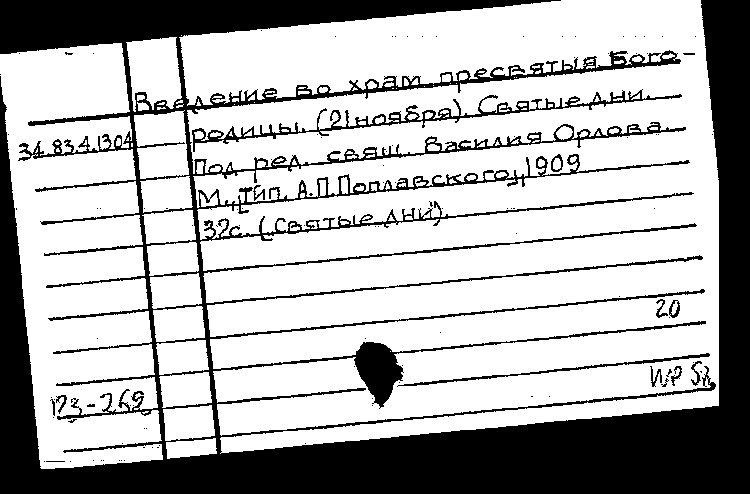 Введение во храм пресвятыя Бого-
34.83.4.1304
родицы. (21 ноября). Святые дни.
Под ред. свящ. Василия Орлова.
М., [Тип. А.П.Поплавского], 1909
32с. (Святые дни).
20
123-269